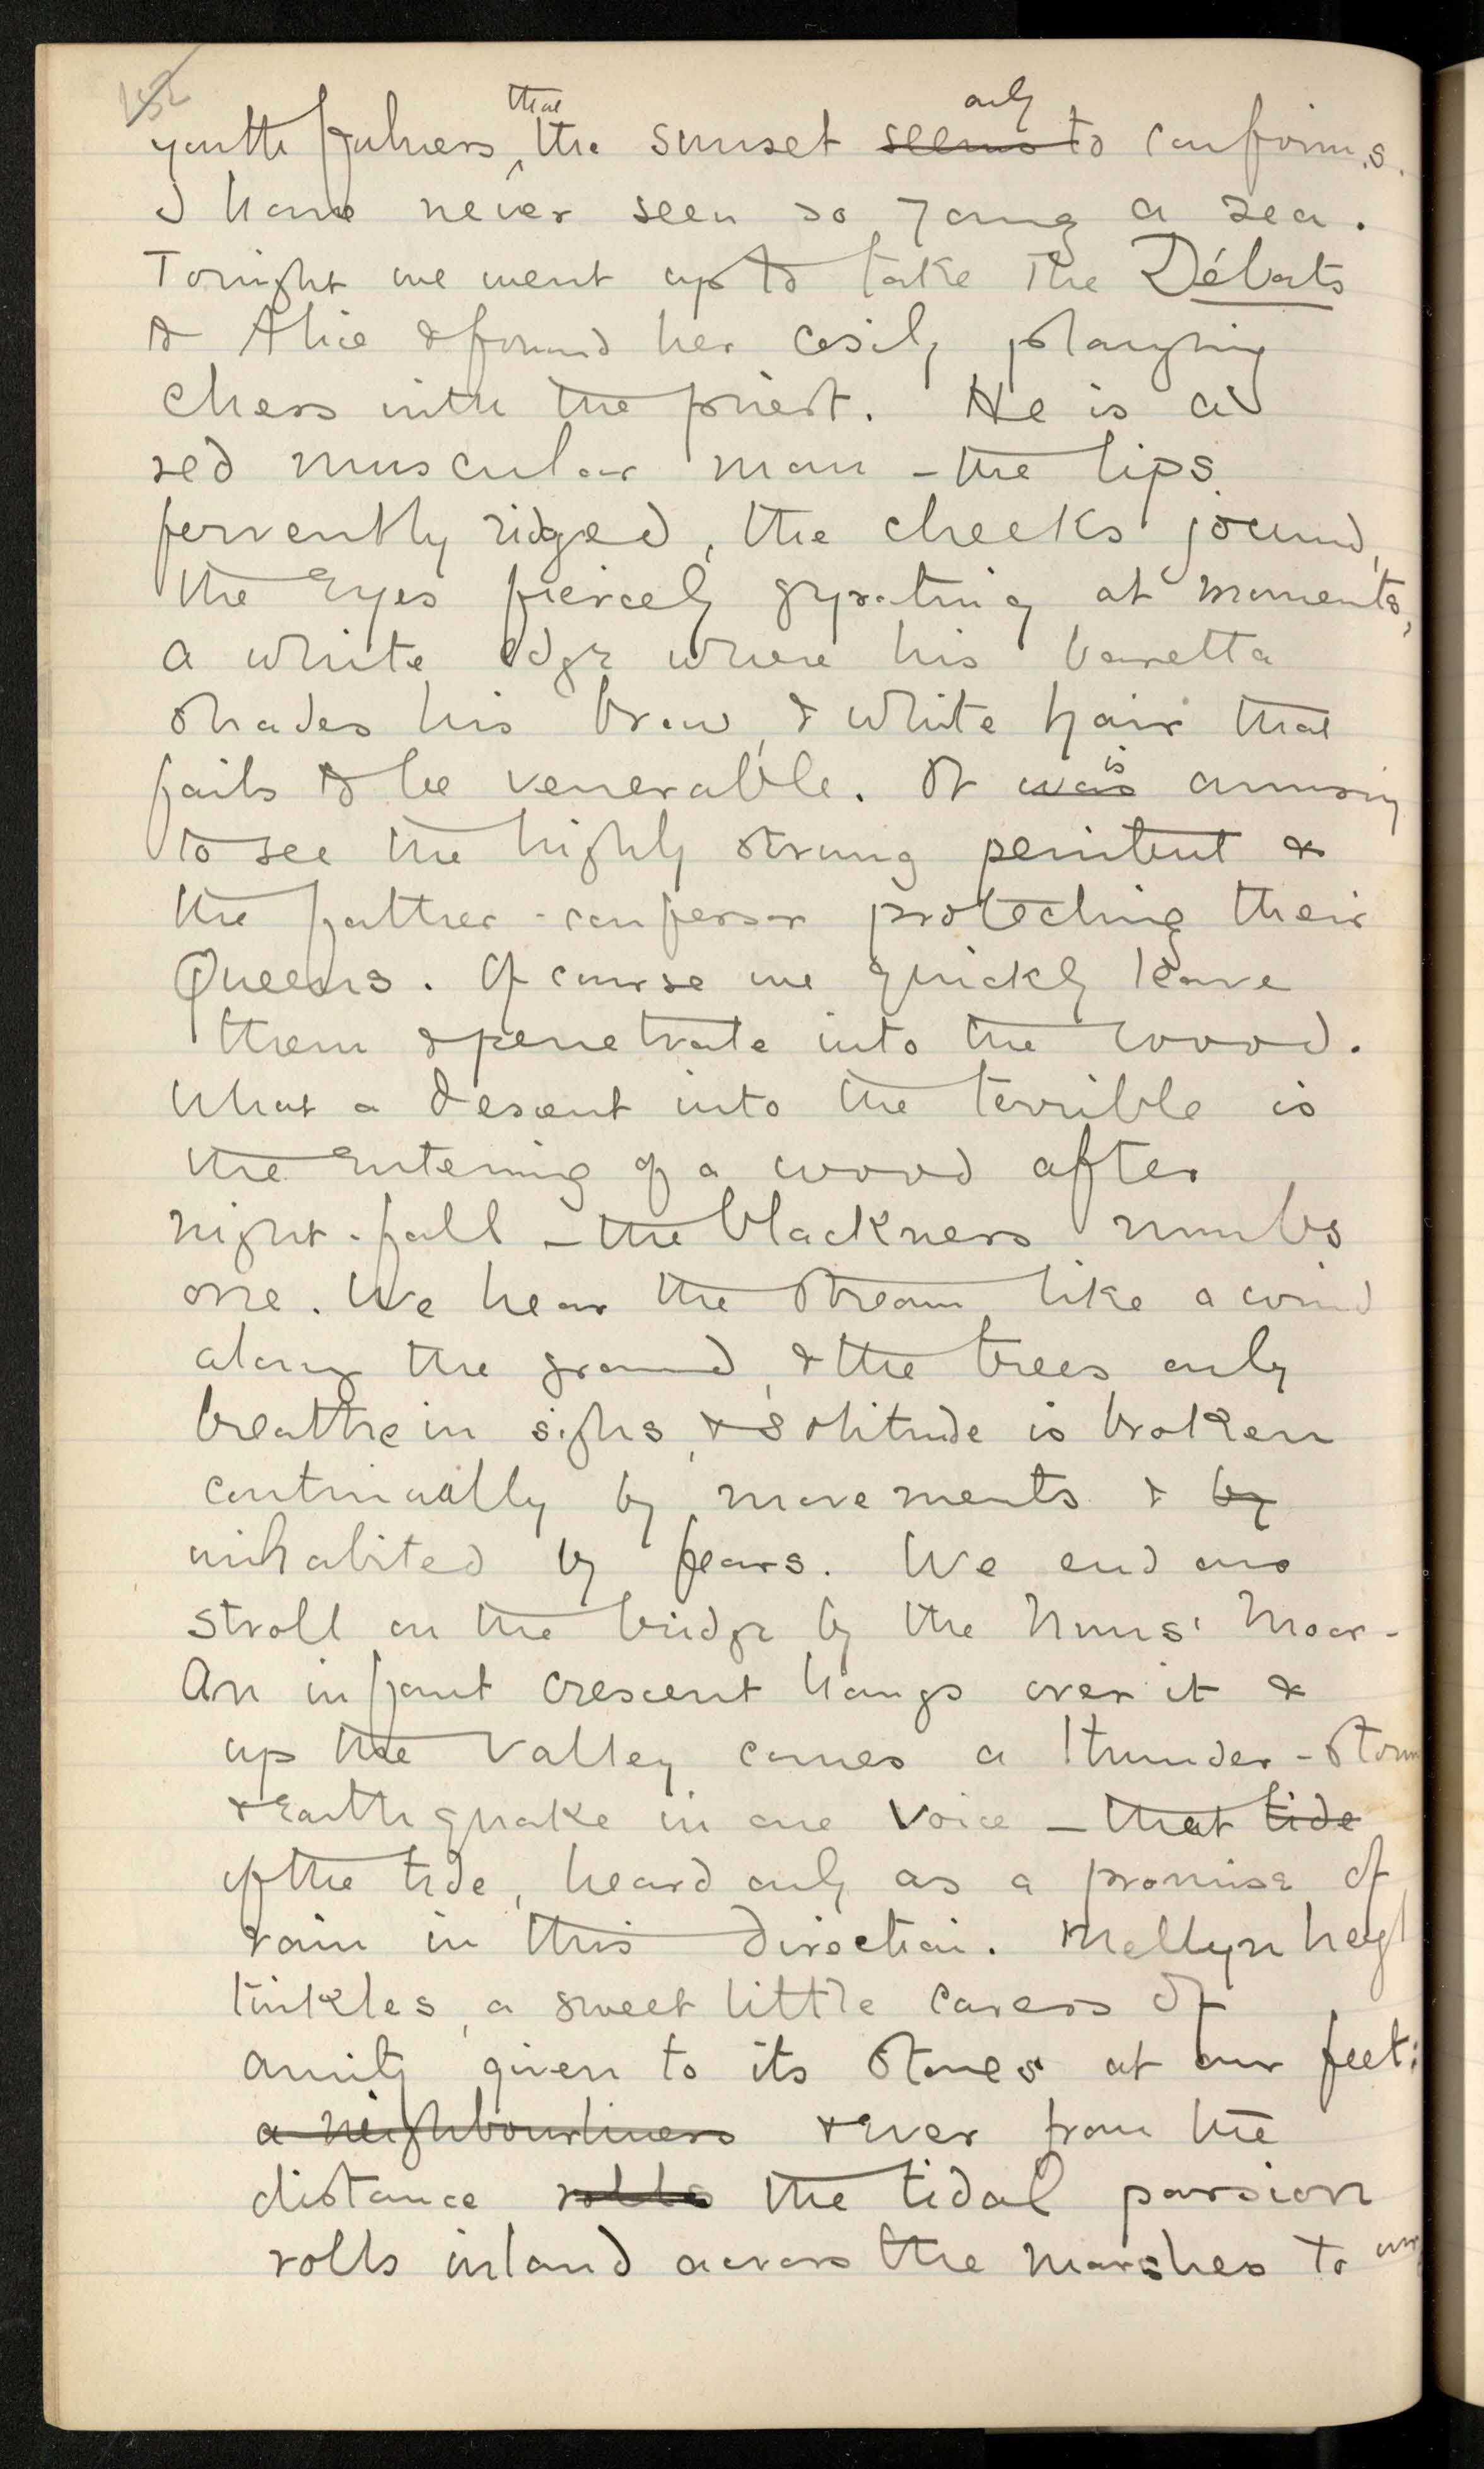 152
youthfulness that the sunset seems only to confirms.
I have never seen so young a sea.
Tonight we went up to take the Débats
to Alice & found her cosily playing
chess with the priest. He is a
red muscular man – the lips
fervently ridged, the cheeks jocund,
the eyes fiercely gyrating at moments,
a white edge where his baretta
shades his brow, & white hair that
fails to be venerable. It was is amusing
to see the highly strung penitent &
the father-confessor protecting their
Queens. Of course we quickly leave
them & penetrate into the wood.
What a descent into the terrible is
the entering of a wood after
night-fall – the blackness numbs
one. We hear the stream like a wind
along the ground, & the trees only
breathe in sighs, & solitude is broken
continually by movements & by
inhabited by fears. We end our
stroll on the bridge by the Nuns' Moor –
An infant crescent hangs over it &
up the valley comes a thunder-storm
& earthquake in one voice – that tide
of the tide, heard only as a promise of
rain in this direction. Mellyn hey
tinkles, a sweet little caress of
amity given to its stones at our feet:
a neighbourliness & ever from the
distance rolls the tidal passion
rolls inland across the marshes to